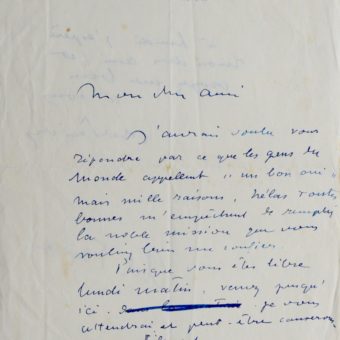 Mon cher ami
J'aurais voulu vous
répondre par ce que les gens du
monde appellent "un bon oui"
mais mille raisons, hélas toutes
bonnes m'empêchent de remplir
la noble mission que vous
voulez bien me confier.
Puisque vous êtes libre
lundi matin, venez jusqu'
ici. je vous
attendrai et peut-être